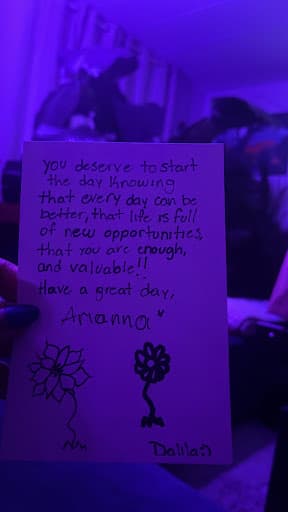 you deserve to start
the day knowing
that every day can be
better, that life is full
of new opportunities,
that you are enough,
and valuable!!
Have a great day,
Arianna*
Dalilah